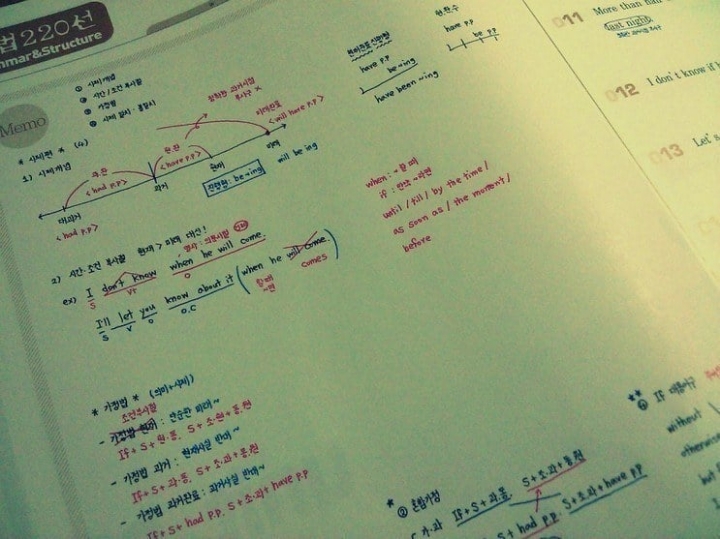 법220선
mmar&Structure
Memo
① 시제개념
② 시간/조건 부사절
③ 가정법
④ 시제 일치 · 불일치
* 시제편 * (4)
1) 시제개념
<had p.p>
<have p.p>
<will have p.p>
대과거
과거
현재
미래
<had p.p>
진행형: be ~ing
will be ing
명확한 과거시점
부사구 X
미래완료
have p.p
be ~ing
have been ~ing
완료수
have p.p
be pp
when: ~할 때
until / till / by the time /
as soon as / the moment /
before
2) 시간·조건 부사절 현재 > 미래 대신!
ex) I don't know when he will come.
S VT O
I'll let you know about it (when he will come.)
S V O O.C
comes
* 가정법 * (의미+시제)
조건부사절
- 가정법 현재 : 단순한 미래~
If + S + 원·동, S + 조·원 + 동·원
- 가정법 과거 : 현재사실 반대~
If + S + 과·동, S + 조·과 + 동·원
- 가정법 과거완료 : 과거사실 반대~
If + S + had p.p, S + 조·과 + have p.p
* ② 혼합가정
If + S + 과·동, S + 조·과 + 동·원
S + had p.p, S + 조·과 + have p.p
If 대용어구
without
otherwise
but
011 More than half
last night
012 I don't know if h
013 Let's